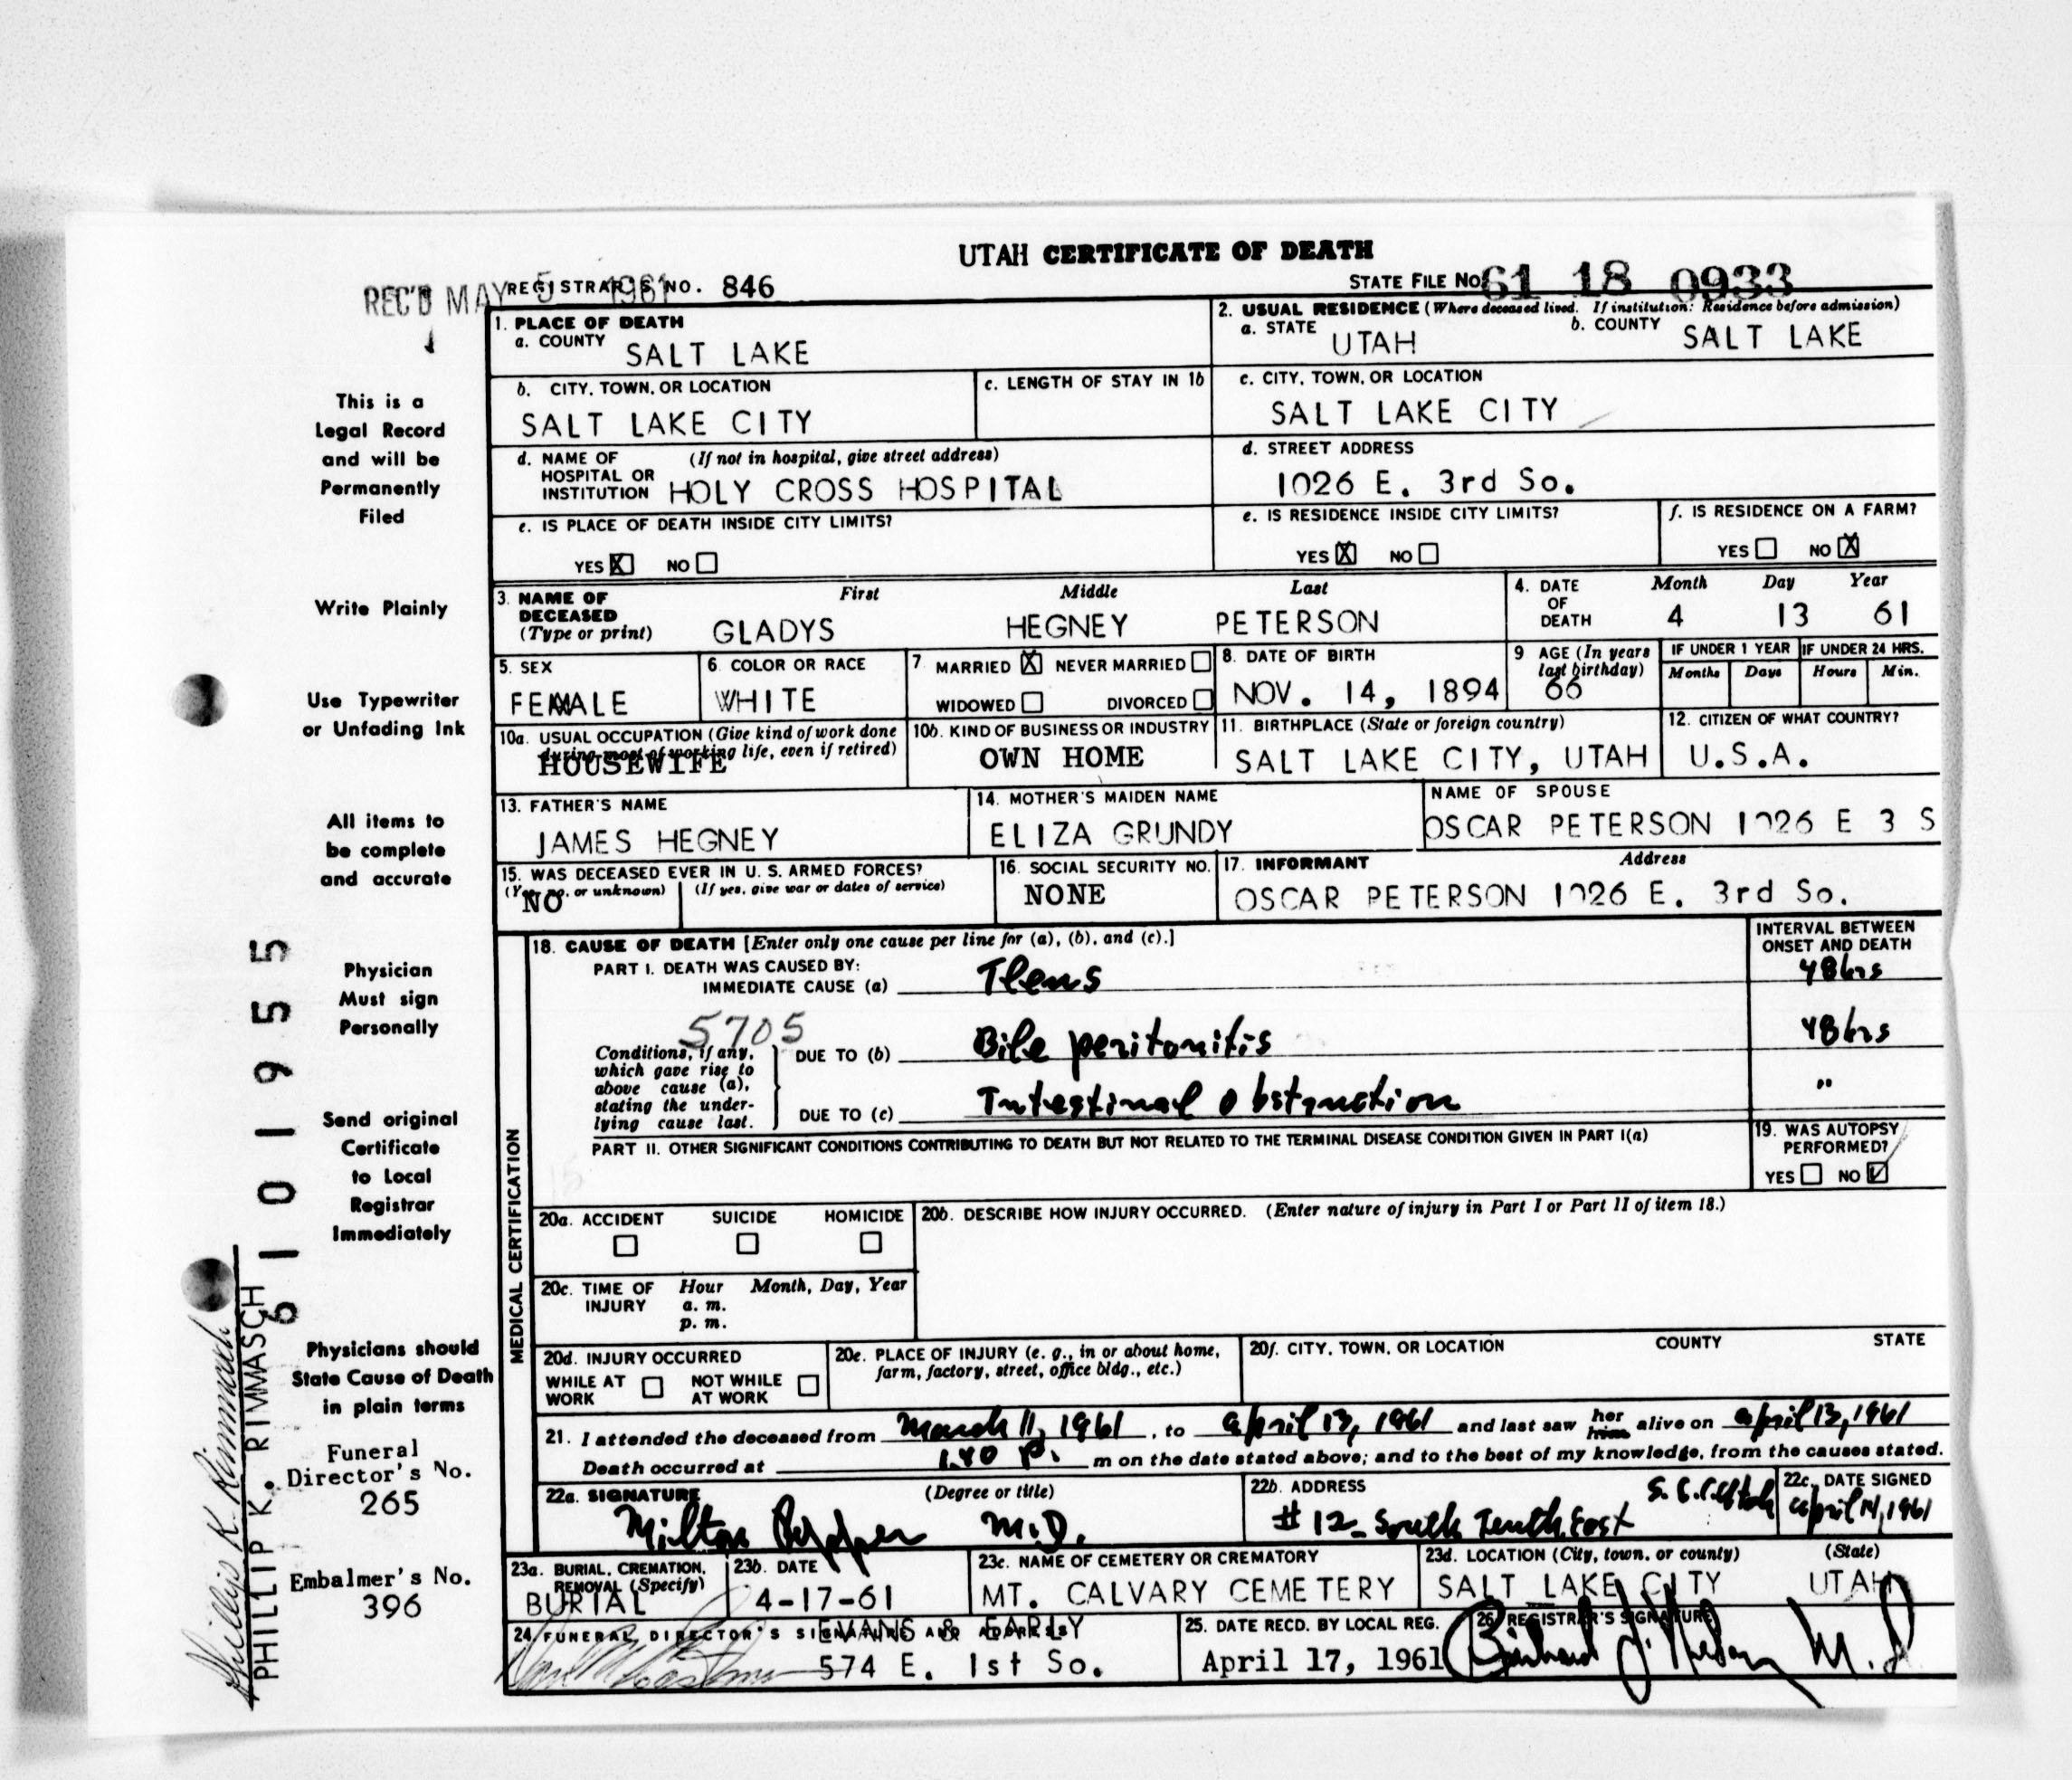 UTAH CERTIFICATE OF DEATH
REC'D MAY 5 1961
REGISTRAR'S NO. 846
STATE FILE NO. 61 18 0933
1. PLACE OF DEATH
a. COUNTY SALT LAKE
2. USUAL RESIDENCE (Where deceased lived. If institution: Residence before admission)
a. STATE UTAH b. COUNTY SALT LAKE
b. CITY, TOWN, OR LOCATION
SALT LAKE CITY
c. LENGTH OF STAY IN 1b
c. CITY, TOWN, OR LOCATION
SALT LAKE CITY
d. NAME OF HOSPITAL OR INSTITUTION (If not in hospital, give street address)
HOLY CROSS HOSPITAL
d. STREET ADDRESS
1026 E. 3rd So.
e. IS PLACE OF DEATH INSIDE CITY LIMITS?
YES X NO
e. IS RESIDENCE INSIDE CITY LIMITS?
YES X NO
f. IS RESIDENCE ON A FARM?
YES NO X
3. NAME OF DECEASED (Type or print)
First Middle Last
GLADYS HEGNEY PETERSON
4. DATE OF DEATH
Month Day Year
4 13 61
5. SEX
FEMALE
6. COLOR OR RACE
WHITE
7. MARRIED X NEVER MARRIED
WIDOWED DIVORCED
8. DATE OF BIRTH
NOV. 14, 1894
9 AGE (In years last birthday)
66
IF UNDER 1 YEAR
Months Days
IF UNDER 24 HRS.
Hours Min.
10a. USUAL OCCUPATION (Give kind of work done during most of working life, even if retired)
HOUSEWIFE
10b. KIND OF BUSINESS OR INDUSTRY
OWN HOME
11. BIRTHPLACE (State or foreign country)
SALT LAKE CITY, UTAH
12. CITIZEN OF WHAT COUNTRY?
U.S.A.
13. FATHER'S NAME
JAMES HEGNEY
14. MOTHER'S MAIDEN NAME
ELIZA GRUNDY
NAME OF SPOUSE
OSCAR PETERSON 1026 E 3 S
15. WAS DECEASED EVER IN U. S. ARMED FORCES?
(Yes, no, or unknown) (If yes, give war or dates of service)
NO
16. SOCIAL SECURITY NO.
NONE
17. INFORMANT Address
OSCAR PETERSON 1026 E. 3rd So.
MEDICAL CERTIFICATION
18. CAUSE OF DEATH [Enter only one cause per line for (a), (b), and (c).]
INTERVAL BETWEEN ONSET AND DEATH
PART I. DEATH WAS CAUSED BY:
IMMEDIATE CAUSE (a) Ileus 48hrs
5705
Conditions, if any, which gave rise to above cause (a), stating the underlying cause last.
DUE TO (b) Bile peritonitis 48hrs
DUE TO (c) Intestinal obstruction "
PART II. OTHER SIGNIFICANT CONDITIONS CONTRIBUTING TO DEATH BUT NOT RELATED TO THE TERMINAL DISEASE CONDITION GIVEN IN PART I(a)
19. WAS AUTOPSY PERFORMED?
YES NO
20a. ACCIDENT SUICIDE HOMICIDE
20b. DESCRIBE HOW INJURY OCCURRED. (Enter nature of injury in Part I or Part II of item 18.)
20c. TIME OF INJURY Hour Month, Day, Year
a. m.
p. m.
20d. INJURY OCCURRED
WHILE AT WORK NOT WHILE AT WORK
20e. PLACE OF INJURY (e. g., in or about home, farm, factory, street, office bldg., etc.)
20f. CITY, TOWN, OR LOCATION COUNTY STATE
21. I attended the deceased from March 11, 1961, to april 13, 1961 and last saw her him alive on april 13, 1961
Death occurred at 1.40 P. m on the date stated above; and to the best of my knowledge, from the causes stated.
22a. SIGNATURE (Degree or title)
Milton Pepper M.D.
22b. ADDRESS
#12 South Tenth East S.L.C. Utah
22c. DATE SIGNED
april 14, 1961
23a. BURIAL, CREMATION, REMOVAL (Specify)
BURIAL
23b. DATE
4-17-61
23c. NAME OF CEMETERY OR CREMATORY
MT. CALVARY CEMETERY
23d. LOCATION (City, town, or county) (State)
SALT LAKE CITY UTAH
24. FUNERAL DIRECTOR'S SIGNATURE AND ADDRESS
EVANS & EARLY
574 E. 1st So.
25. DATE RECD. BY LOCAL REG.
April 17, 1961
26. REGISTRAR'S SIGNATURE
M.D.
This is a
Legal Record
and will be
Permanently
Filed
Write Plainly
Use Typewriter
or Unfading Ink
All items to
be complete
and accurate
Physician
Must sign
Personally
Send original
Certificate
to Local
Registrar
Immediately
Physicians should
State Cause of Death
in plain terms
Funeral
Director's No.
265
Embalmer's No.
396
6101955
Phillip K. Rimmasch
PHILLIP K. RIMMASCH